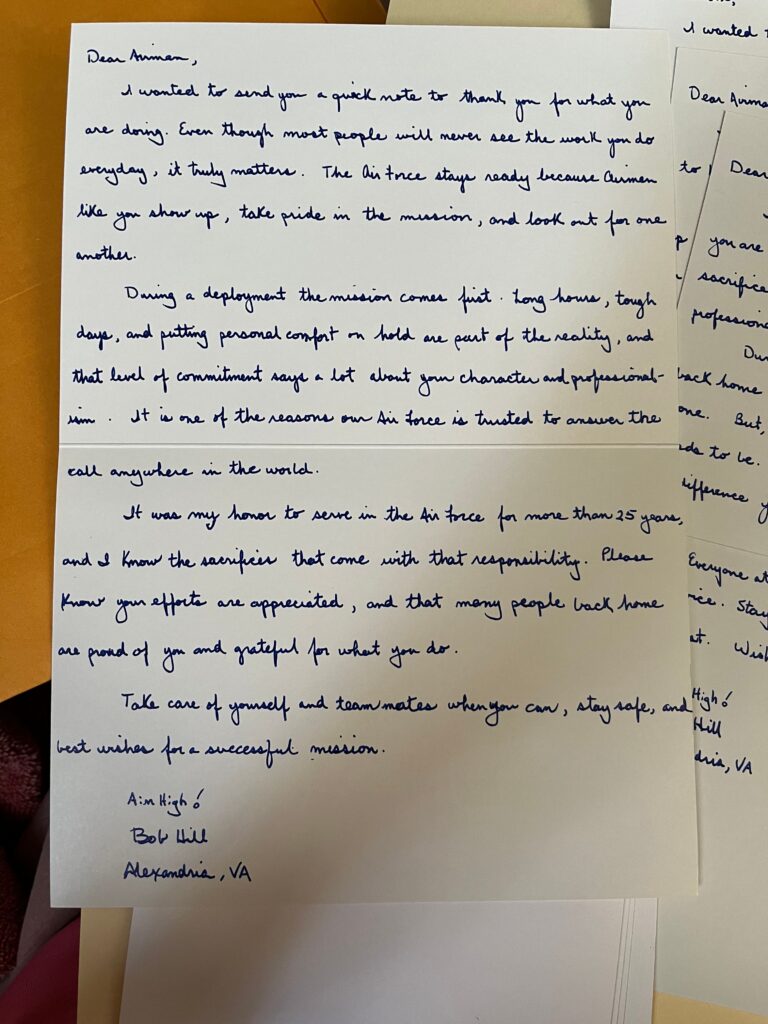 Dear Airmen,
I wanted to send you a quick note to thank you for what you
are doing. Even though most people will never see the work you do
everyday, it truly matters. The Air Force stays ready because Airmen
like you show up, take pride in the mission, and look out for one
another.
During a deployment the mission comes first. Long hours, tough
days, and putting personal comfort on hold are part of the reality, and
that level of commitment says a lot about your character and professional-
ism. It is one of the reasons our Air Force is trusted to answer the
call anywhere in the world.
It was my honor to serve in the Air Force for more than 25 years,
and I know the sacrifices that come with that responsibility. Please
know your efforts are appreciated, and that many people back home
are proud of you and grateful for what you do.
Take care of yourself and team mates when you can, stay safe, and
best wishes for a successful mission.
Aim High!
Bob Hill
Alexandria, VA
I wanted
Dear
to
Dear
you are
sacrifice
back home
one. But,
to be.
difference
Everyone at
Stay
High!
Hill
VA